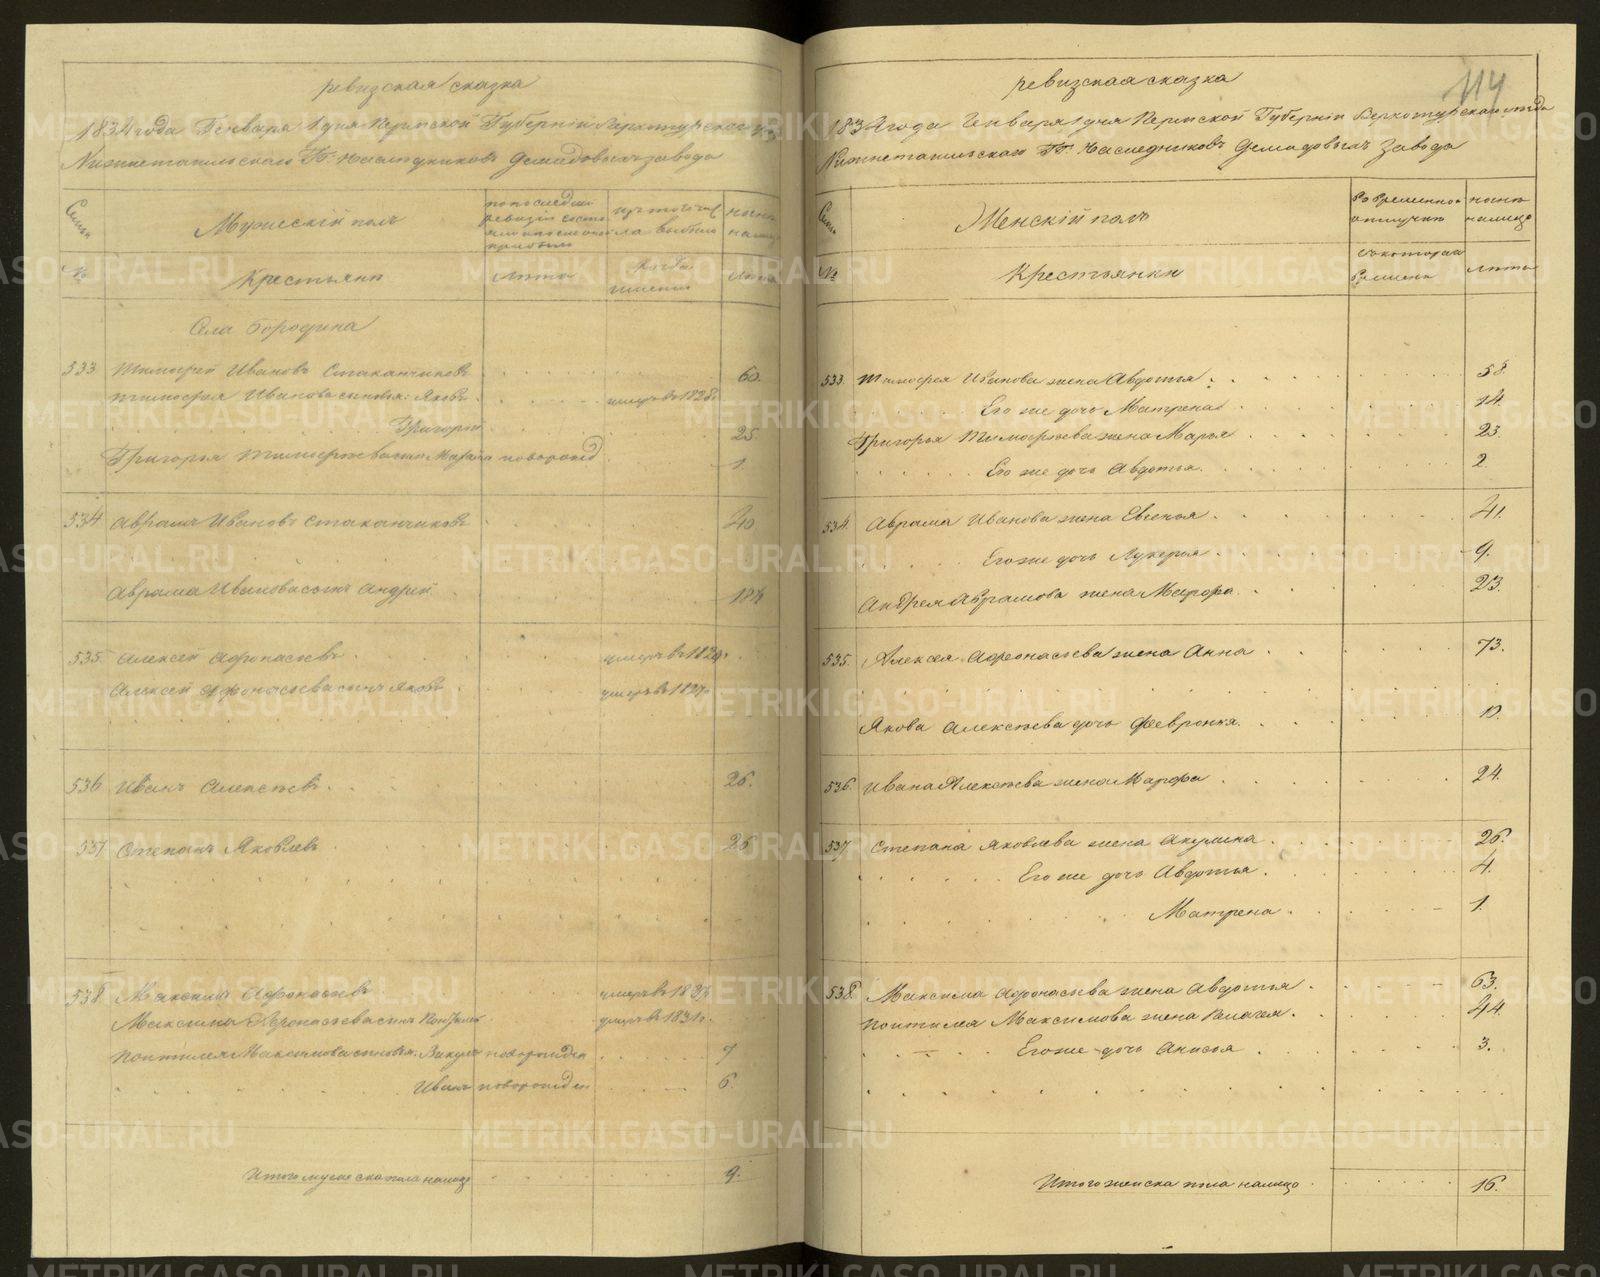 ревизская сказка
1834 года Генваря 1 дня Пермской Губернии Верхотурского уезда
Нижнетагильскаго Гг. Наследниковъ Демидовыхъ завода
Семьи
Мужескiй полъ
по последней ревизiи состояло и после оной прибыло
изъ того числа выбыло
ныне налицо
№
Крестьяне
Лета
Когда именно
Лета
Села Бородина
533 Тимофей Ивановъ Стаканчиковъ 60.
Тимофея Иванова сыновья: Яковъ умеръ въ 1828.
Григорiй 25
Григорья Тимофеева сынъ новорожд 1.
534 Аврамъ Ивановъ Стаканчиковъ 40
Аврама Иванова сынъ Андрей 18½
535 Алексей Афонасьевъ умеръ въ
Алексей Афонасьева сынъ Яковъ умеръ въ 1827.
536 Иванъ Алексеевъ 26.
537 Степанъ Яковлевъ 26
538 Максимъ Афонасьевъ умеръ въ
Максима Афонасьева сынъ умеръ въ 1831.
Максимова сыновья: Викулъ новорожден 7
Иванъ новорожден 6.
Итого мужеска пола налицо 9.
ревизская сказка
114
1834 года Генваря 1 дня Пермской Губернiи Верхотурскаго уезда
Нижнетагильскаго Гг. Наследниковъ Демидовыхъ Завода
Семьи
Женскiй полъ
Во временной отлучке
ныне налицо
№
Крестьянки
съ котораго времени
Лета
533. Тимофея Иванова жена Авдотья. 58.
Его же дочь Матрена 14.
Григорья Тимофеева жена Марья 23.
Его же дочь Авдотья. 2.
534. Аврама Иванова жена Евгенья. 41.
Его же дочь Лукерья 9.
Андрея Аврамова жена Марфа. 23.
535. Алексея Афонасьева жена Анна 73.
Якова Алексеева дочь Февронья.
536. Ивана Алексеева жена Марфа 24.
537 Степана Яковлева жена Акулина 26.
Его же дочь Авдотья. 4.
Матрена. 1.
538. Максима Афонасьева жена Авдотья 63.
Максимова жена Пелагея. 44.
Его же дочь Анисья 3.
Итого женска пола налицо 16.
METRIKI.GASO-URAL.RU